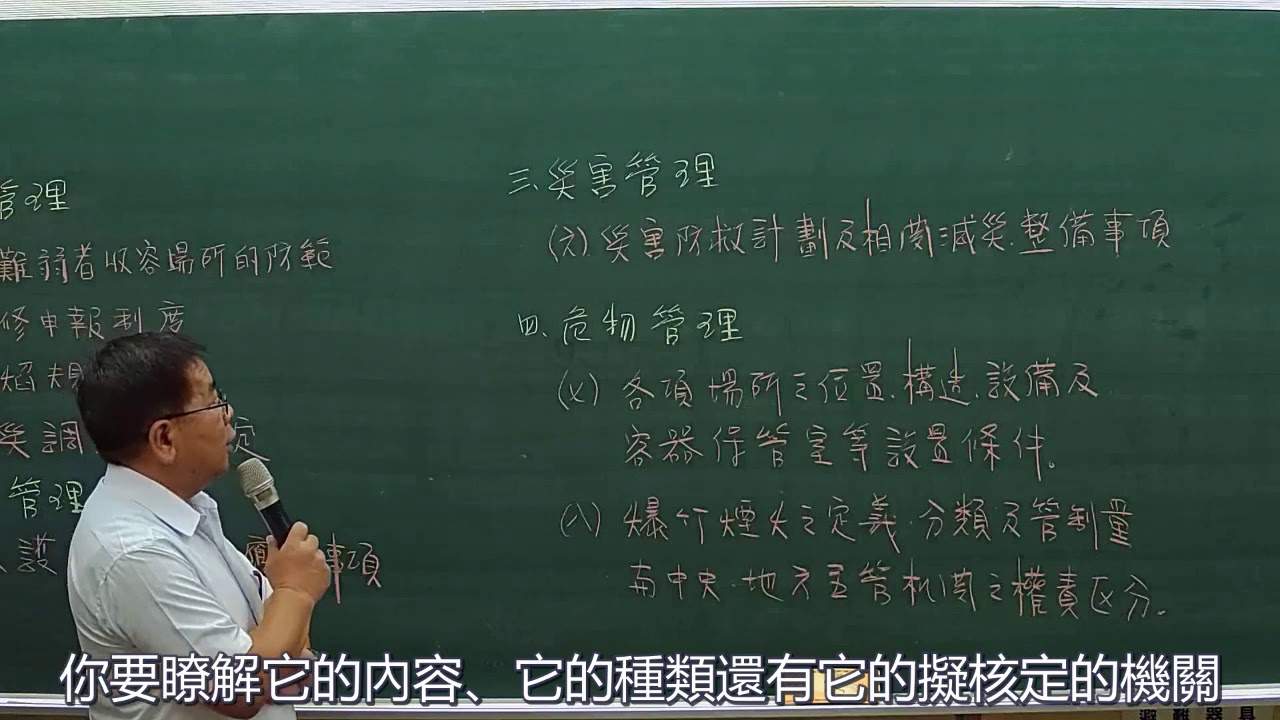 管理
難弱者收容場所的防範
修申報制度
焰規
災調
處
管理
護
事項
三、災害管理
(六) 災害防救計劃及相關減災、整備事項
四、危物管理
(七) 各項場所之位置、構造、設備及
容器保管室等設置條件。
(八) 爆竹煙火之定義、分類及管制量
與中央、地方主管机関之權責区分。
你要瞭解它的內容、它的種類還有它的擬核定的機關
避難器具